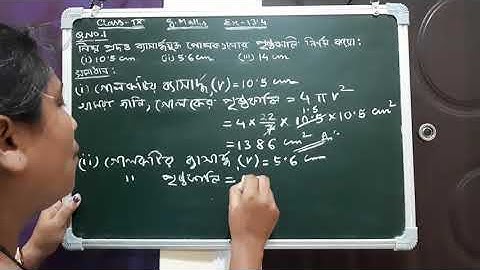 Class-IX G. Maths Ex-13.4
Q.NO.1
নিম্ন প্ৰদত্ত ব্যাসাৰ্দ্ধযুক্ত গোলকবোৰৰ পৃষ্ঠকালি নিৰ্ণয় কৰা:
(i) 10.5 cm (ii) 5.6 cm (iii) 14 cm
সমাধান:
(i) গোলকটোৰ ব্যাসাৰ্দ্ধ (r) = 10.5 cm
আমি জানো, গোলকৰ পৃষ্ঠকালি = 4 π r²
= 4 × 22/7 × 10.5 × 10.5 cm²
1.5
= 1386 cm²
(ii) গোলকটোৰ ব্যাসাৰ্দ্ধ (r) = 5.6 cm
" পৃষ্ঠকালি =